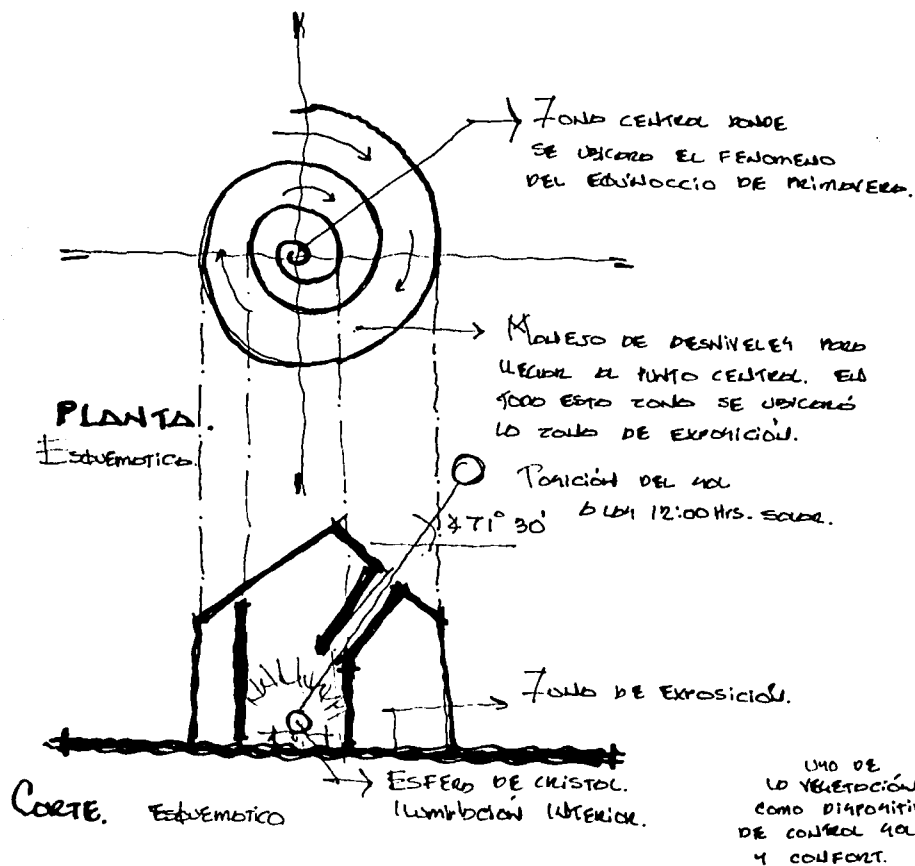 ZONA CENTRAL DONDE
SE UBICARA EL FENOMENO
DEL EQUINOCCIO DE PRIMAVERA.
MANEJO DE DESNIVELES PARA
LLEGAR AL PUNTO CENTRAL. EN
TODA ESTA ZONA SE UBICARÁ
LA ZONA DE EXPOSICIÓN.
PLANTA.
ESQUEMATICA.
POSICIÓN DEL SOL
A LAS 12:00 Hrs. SOLAR.
∡71° 30'
ZONA DE EXPOSICIÓN.
ESFERA DE CRISTAL.
ILUMINACIÓN INTERIOR.
CORTE. ESQUEMATICO
USO DE
LA VEGETACIÓN
COMO
DE CONTROL
Y CONFORT.